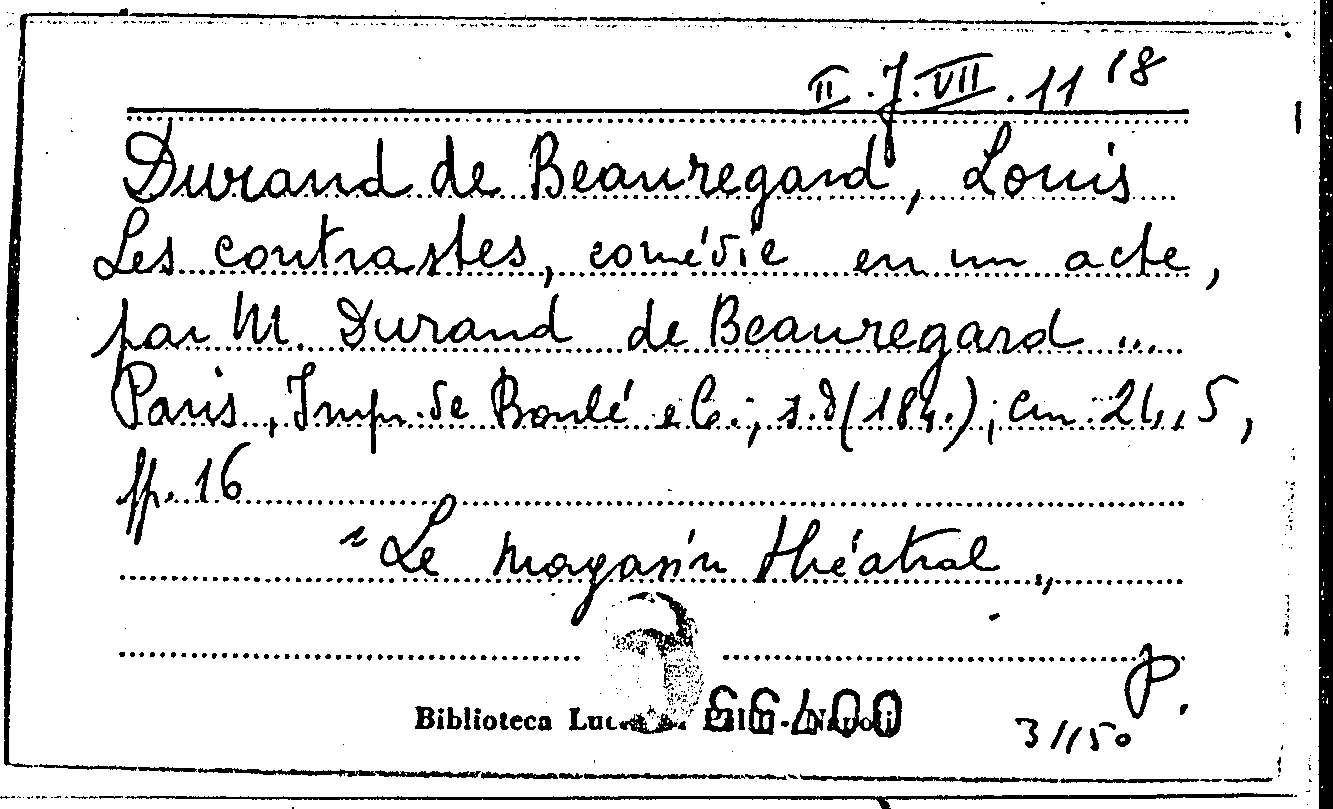 II. J. VII. 11 18
Durand de Beauregard, Louis
Les contrastes, comédie en un acte,
par M. Durand de Beauregard ...
Paris, Impr. de Boulé e C.; s.d (184.); cm. 24,5,
pp. 16
"Le magasin théatral"
P.
Biblioteca Napoli 66400